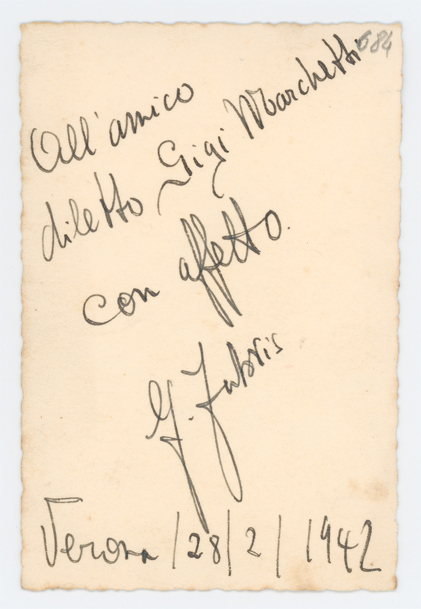 684
All'amico
diletto Gigi Marchetti
con affetto.
G. Fabris
Verona /28/2/1942